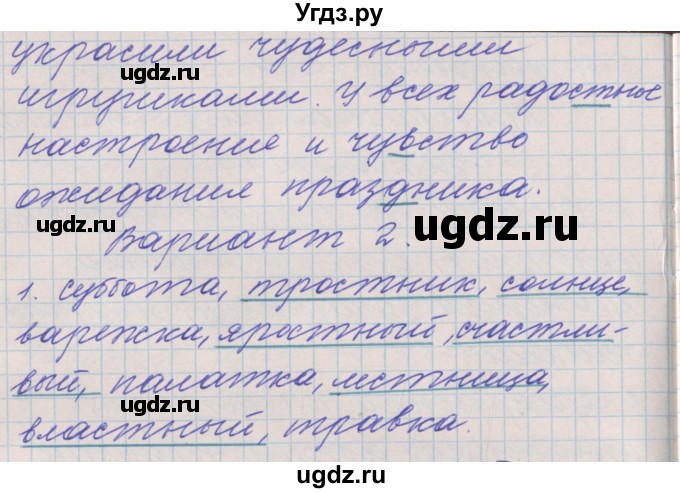 Угдз.ру
украсили чудесными
ugdz.ru
ugdz.ru
игрушками. У всех радостные
настроение и чувство
ожидания праздника.
ugdz.ru
ugdz.ru
Вариант 2.
1. суббота, тростник, солнце,
варежка, яростный, счастли-
вый, палатка, лестница,
ugdz.ru
ugdz.ru
властный, травка.
ugdz.ru